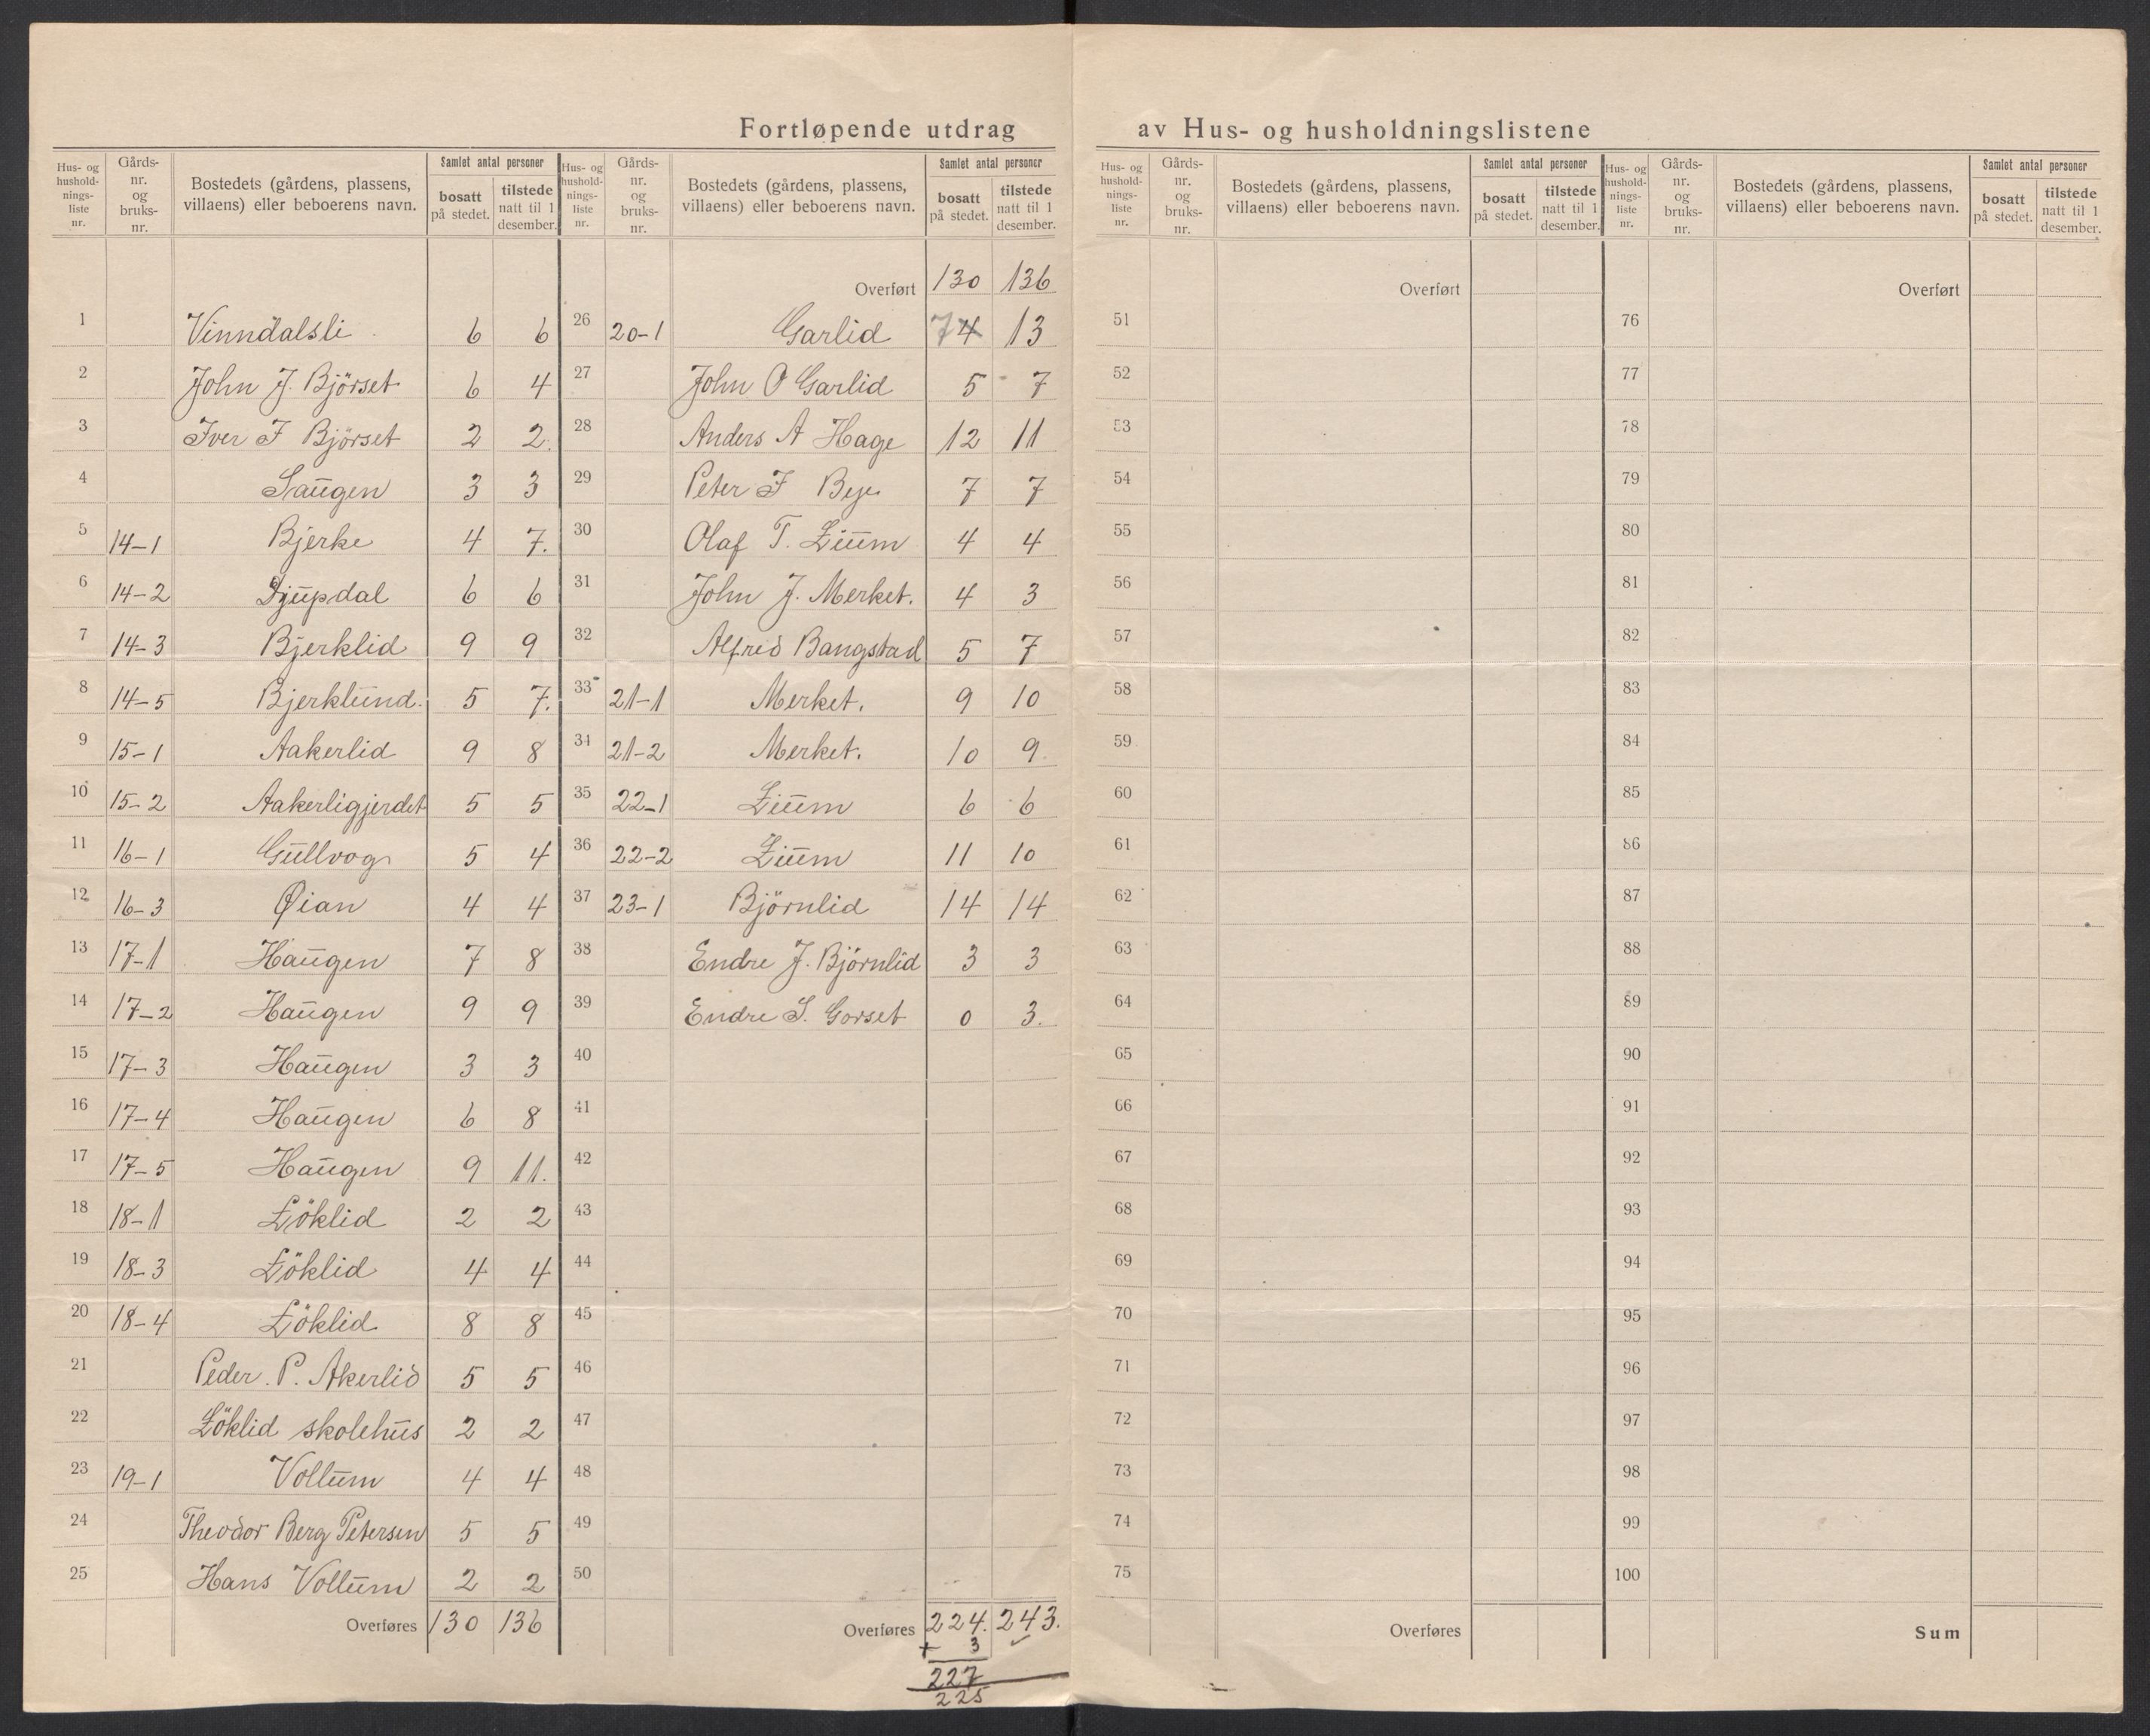 Fortløpende utdrag av Hus- og husholdningslistene
Hus- og hushold-nings-liste nr. | Gårds-nr. og bruks-nr. | Bostedets (gårdens, plassens, villaens) eller beboerens navn. | Samlet antal personer | bosatt på stedet. | tilstede natt til 1 desember.
1 Vinndalsli 6 6
2 John J. Björset 6 4
3 Iver J Björset 2 2.
4 Saugen 3 3
5 14-1 Bjerke 4 7.
6 14-2 Djupdal 6 6
7 14-3 Bjerklid 9 9
8 14-5 Bjerklund. 5 7.
9 15-1 Aakerlid 9 8
10 15-2 Aakerligjerdet 5 5
11 16-1 Gullvog 5 4
12 16-3 Øian 4 4
13 17-1 Haugen 7 8
14 17-2 Haugen 9 9
15 17-3 Haugen 3 3
16 17-4 Haugen 6 8
17 17-5 Haugen 9 11.
18 18-1 Löklid 2 2
19 18-3 Löklid 4 4
20 18-4 Löklid 8 8
21 Peder. P. Akerlid 5 5
22 Löklid skolehus 2 2
23 19-1 Vollum 4 4
24 Theodor Berg Petersen 5 5
25 Hans Vollum 2 2
Overføres 130 136
Hus- og hushold-nings-liste nr. | Gårds-nr. og bruks-nr. | Bostedets (gårdens, plassens, villaens) eller beboerens navn. | Samlet antal personer | bosatt på stedet. | tilstede natt til 1 desember.
Overført 130 136
26 20-1 Garlid 7 4 13
27 John O Garlid 5 7
28 Anders A Hage 12 11
29 Peter J Beje 7 7
30 Olaf T. Lium 4 4
31 John J. Merket. 4 3
32 Alfred Bangstad 5 7
33 21-1 Merket. 9 10
34 21-2 Merket. 10 9
35 22-1 Lium 6 6
36 22-2 Lium 11 10
37 23-1 Björnlid 14 14
38 Endre J. Björnlid 3 3
39 Endre S. Gorset 0 3.
40
41
42
43
44
45
46
47
48
49
50
Overføres 224. 243.
+ 3
227
225
Hus- og hushold-nings-liste nr. | Gårds-nr. og bruks-nr. | Bostedets (gårdens, plassens, villaens) eller beboerens navn. | Samlet antal personer | bosatt på stedet. | tilstede natt til 1 desember.
Overført
51
52
53
54
55
56
57
58
59
60
61
62
63
64
65
66
67
68
69
70
71
72
73
74
75
Overføres
Hus- og hushold-nings-liste nr. | Gårds-nr. og bruks-nr. | Bostedets (gårdens, plassens, villaens) eller beboerens navn. | Samlet antal personer | bosatt på stedet. | tilstede natt til 1 desember.
Overført
76
77
78
79
80
81
82
83
84
85
86
87
88
89
90
91
92
93
94
95
96
97
98
99
100
Sum